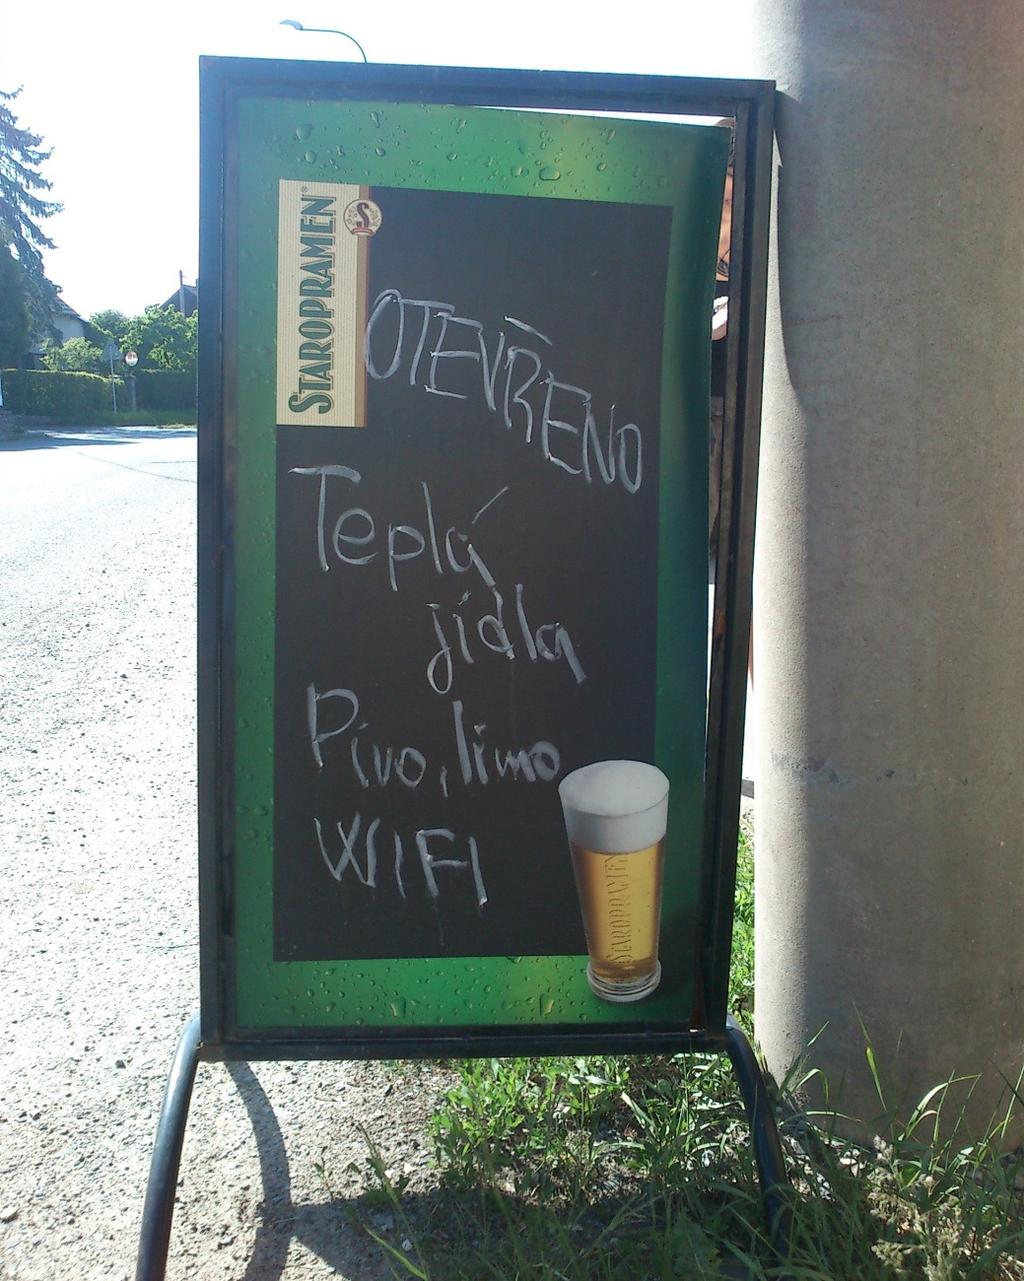 STAROPRAMEN®
S
OTEVŘENO
Teplá
jídla
Pivo, limo
WIFI
STAROPRAMEN